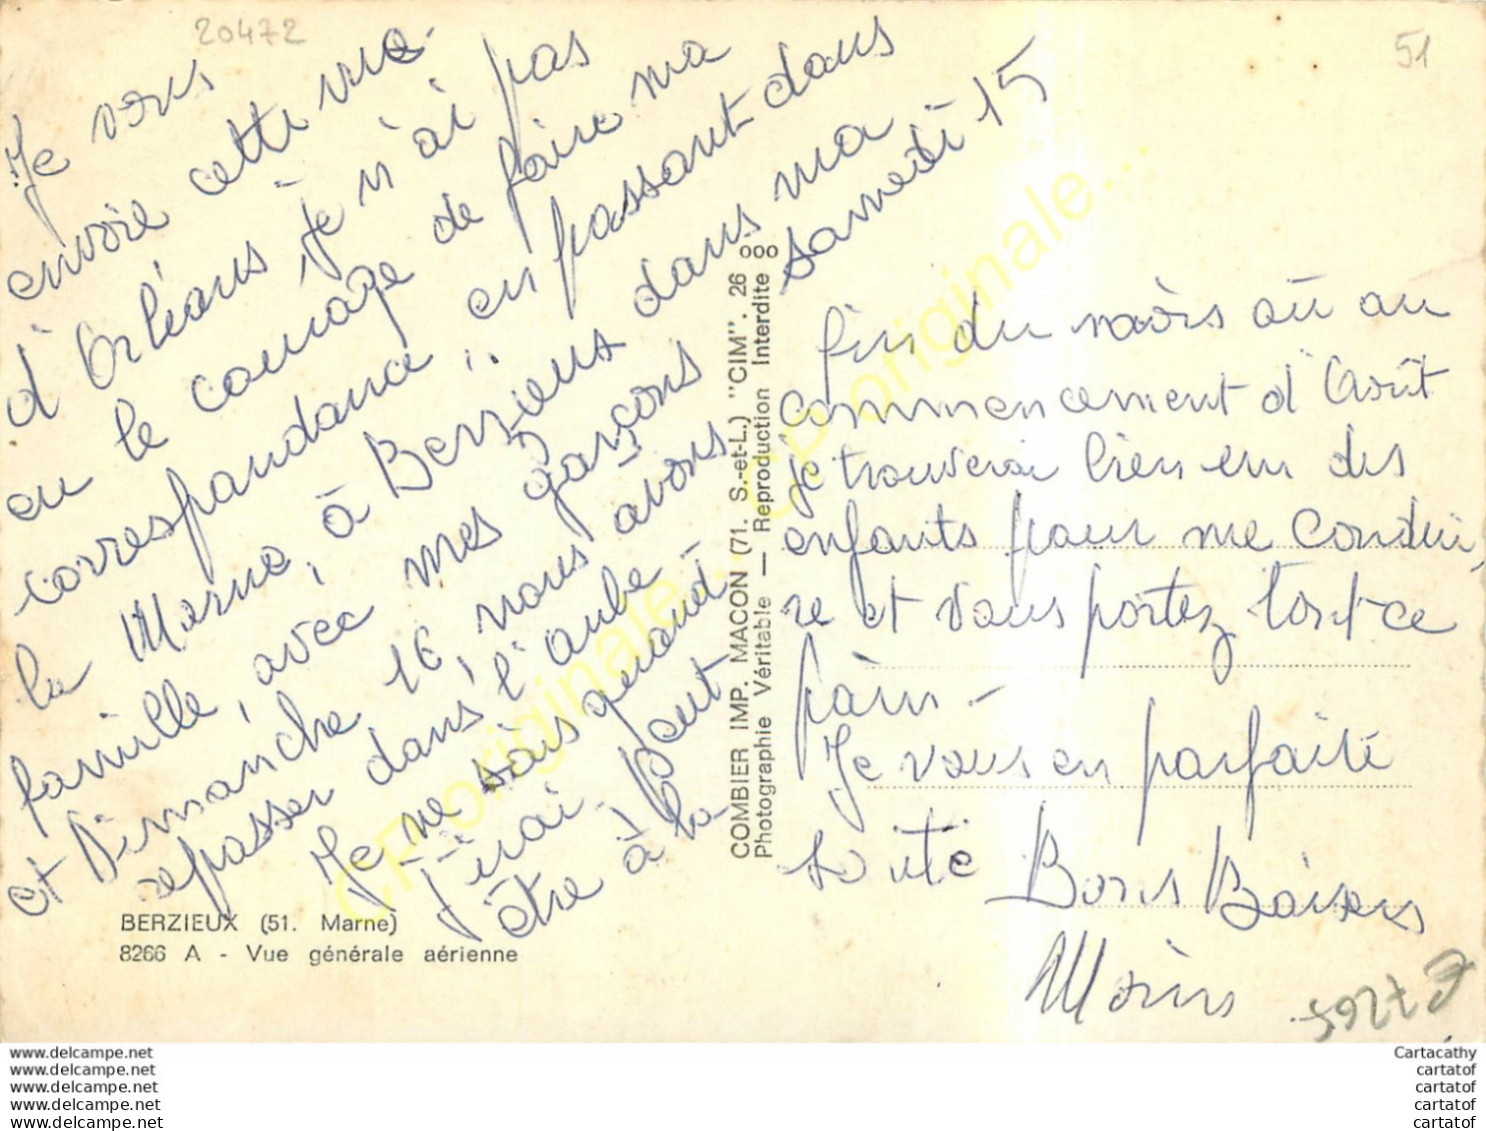 20472
51
Je vous
envoie cette vue
d'Orléans, je n'ai pas
eu le courage de faire ma
correspondance, en passant dans
la Marne, à Berzieux dans ma
famille, avec mes garçons samedi 15
et Dimanche 16, nous avons
repasser dans l'aube
Je ne sais quand
J'irai. Peut
être à la
fin du mois où au
commencement d'Août
je trouverai bien un des
enfants pour me condui
re et vous portez tout ce
pain -
Je vous en parfaite
Bons Baisers
BERZIEUX (51. Marne)
8266 A - Vue générale aérienne
COMBIER IMP. MACON (71. S.-et-L.) "CIM". 26 ooo
Photographie Véritable — Reproduction Interdite
CPoriginale...
CPoriginale...
www.delcampe.net
www.delcampe.net
www.delcampe.net
www.delcampe.net
www.delcampe.net
Cartacathy
cartatof
cartatof
cartatof
cartatof